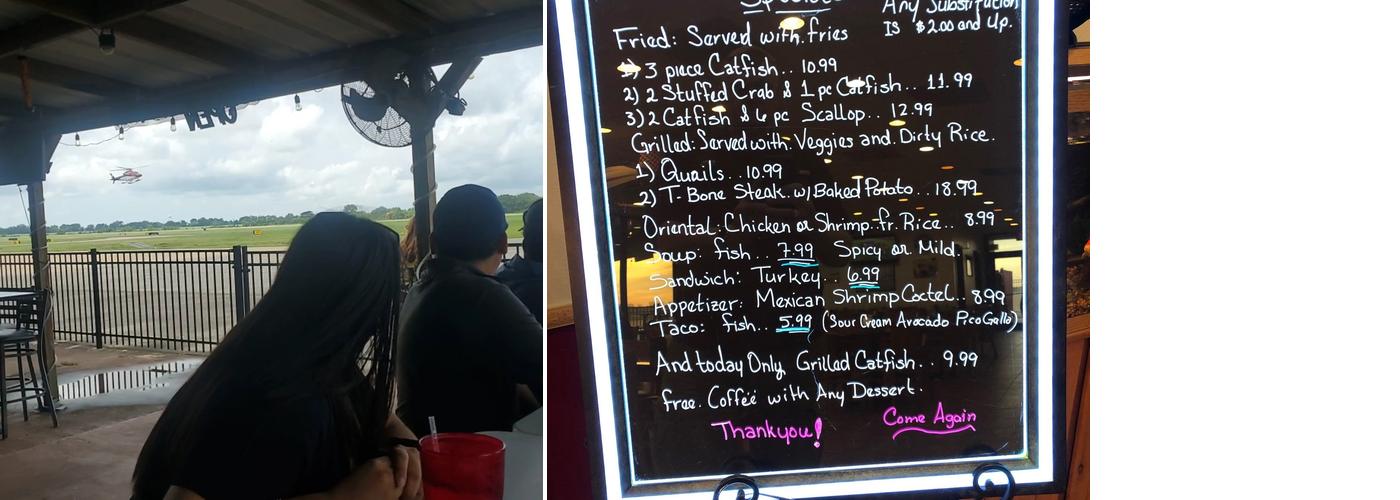 OPEN
Specials
Any Substitution
Is $2.00 and Up.
Fried: Served with fries
1) 3 piece Catfish.. 10.99
2) 2 Stuffed Crab & 1 pc Catfish.. 11.99
3) 2 Catfish & 6 pc Scallop.. 12.99
Grilled: Served with: Veggies and Dirty Rice.
1) Quails.. 10.99
2) T-Bone Steak w/Baked Potato.. 18.99
Oriental: Chicken or Shrimp fr. Rice.. 8.99
Soup: fish.. 7.99 Spicy or Mild.
Sandwich: Turkey.. 6.99
Appetizer: Mexican Shrimp Coctel.. 8.99
Taco: fish.. 5.99 (Sour Cream Avocado Pico Gallo)
And today Only Grilled Catfish.. 9.99
free. Coffee with Any Dessert.
Thankyou!
Come Again